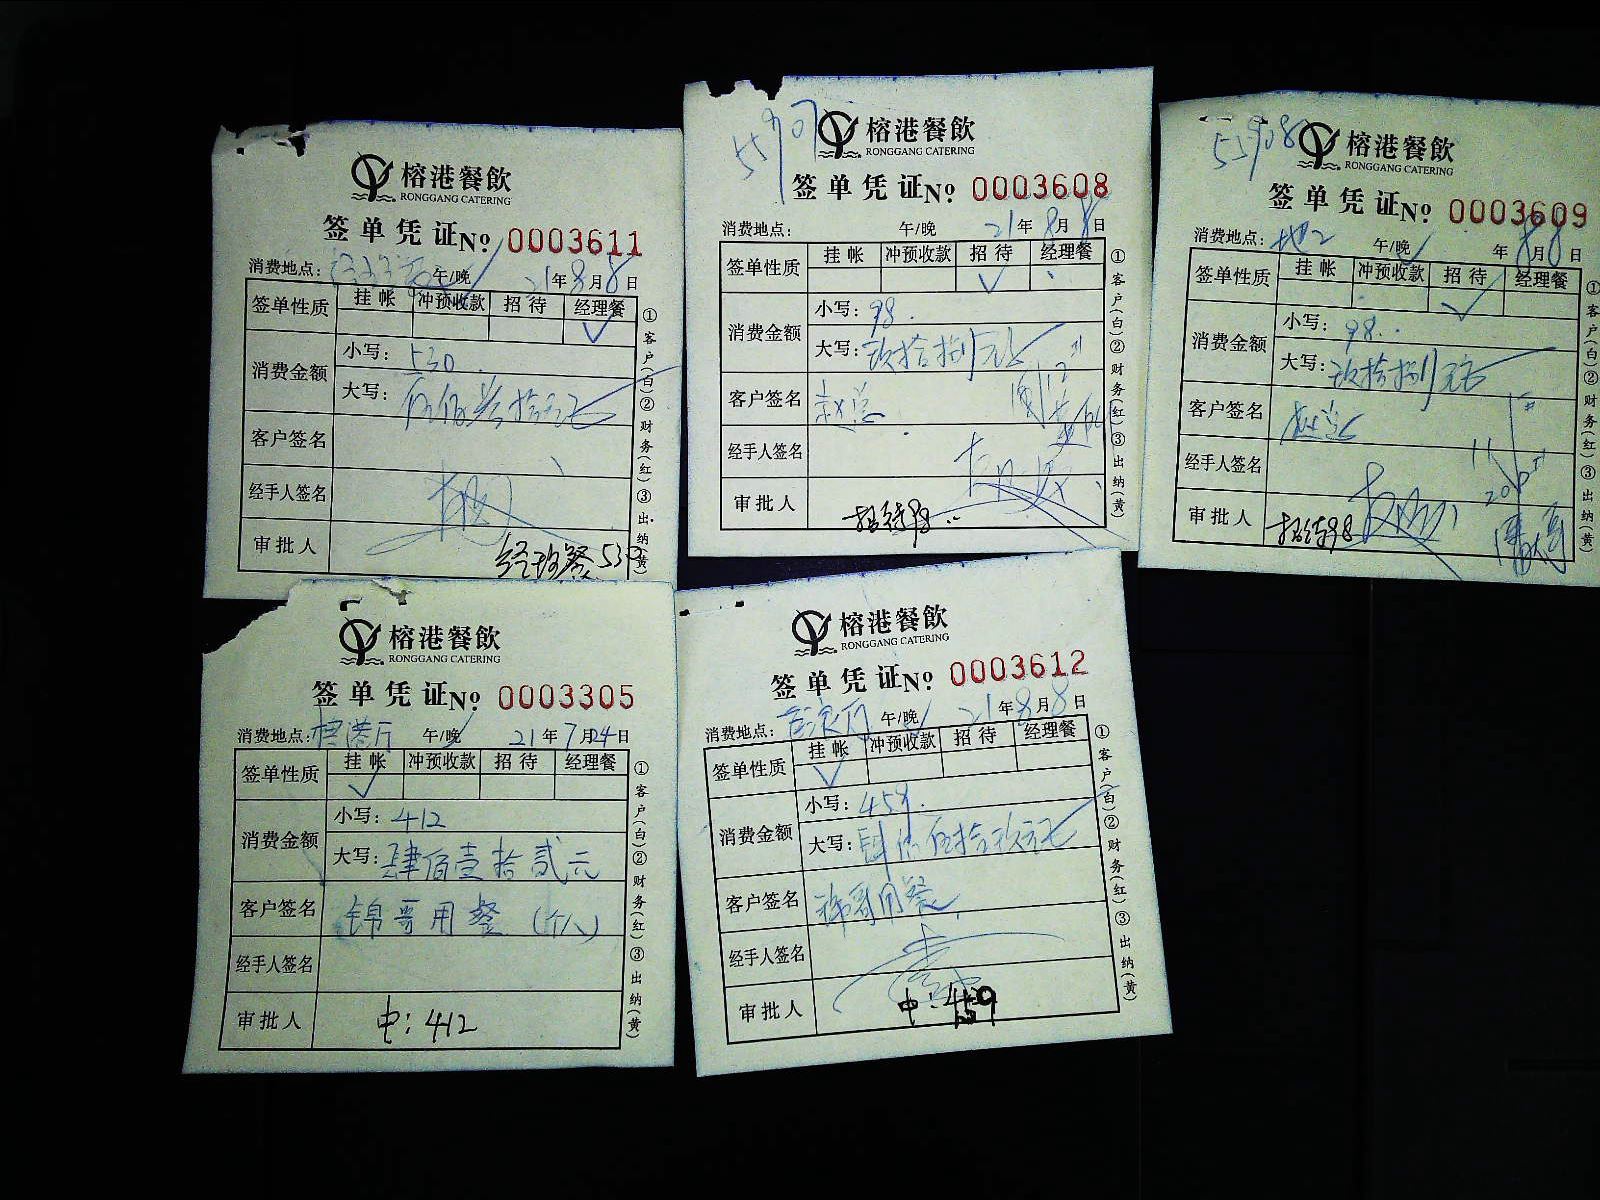 榕港餐飲
RONGGANG CATERING
签单凭证No 0003611
消费地点: 午/晚 21年8月8日
签单性质 挂帐 冲预收款 招待 经理餐 ✓
消费金额 小写: 530.
大写: 伍佰叁拾元正
客户签名
经手人签名
审批人
经理餐530
①客户(白)②财务(红)③出纳(黄)
55907
榕港餐飲
RONGGANG CATERING
签单凭证No 0003608
消费地点: 午/晚 21年8月8日
签单性质 挂帐 冲预收款 招待 ✓ 经理餐
消费金额 小写: 98.
大写: 玖拾捌元正
客户签名 赵总
经手人签名
审批人
招待98..
①客户(白)②财务(红)③出纳(黄)
55908
榕港餐飲
RONGGANG CATERING
签单凭证No 0003609
消费地点: 地2 午/晚 年8月8日
签单性质 挂帐 冲预收款 招待 ✓ 经理餐
消费金额 小写: 98..
大写: 玖拾捌元正
客户签名 赵总
经手人签名
审批人 招待98
①客户(白)②财务(红)③出纳(黄)
榕港餐飲
RONGGANG CATERING
签单凭证No 0003305
消费地点: 榕港厅 午/晚 21年7月24日
签单性质 挂帐 ✓ 冲预收款 招待 经理餐
消费金额 小写: 412
大写: 肆佰壹拾贰元
客户签名 锦哥用餐(个人)
经手人签名
审批人 中: 412
①客户(白)②财务(红)③出纳(黄)
榕港餐飲
RONGGANG CATERING
签单凭证No 0003612
消费地点: 午/晚 21年8月8日
签单性质 挂帐 ✓ 冲预收款 招待 经理餐
消费金额 小写: 459.
大写: 肆佰伍拾玖元正
客户签名 锦哥用餐
经手人签名
审批人 中: 459
①客户(白)②财务(红)③出纳(黄)